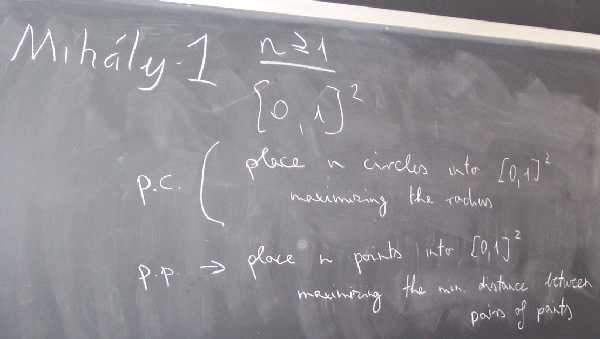 Mihály-1 n≥1
[0,1]²
p.c. ( place n circles into [0,1]²
maximizing the radius
p.p. → place n points into [0,1]²
maximizing the min. distance between
pairs of points